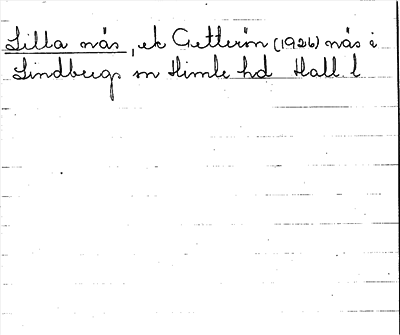 Lilla nås, ek Getterön (1926) nås i
Lindbergs sn Himle hd Hall. l